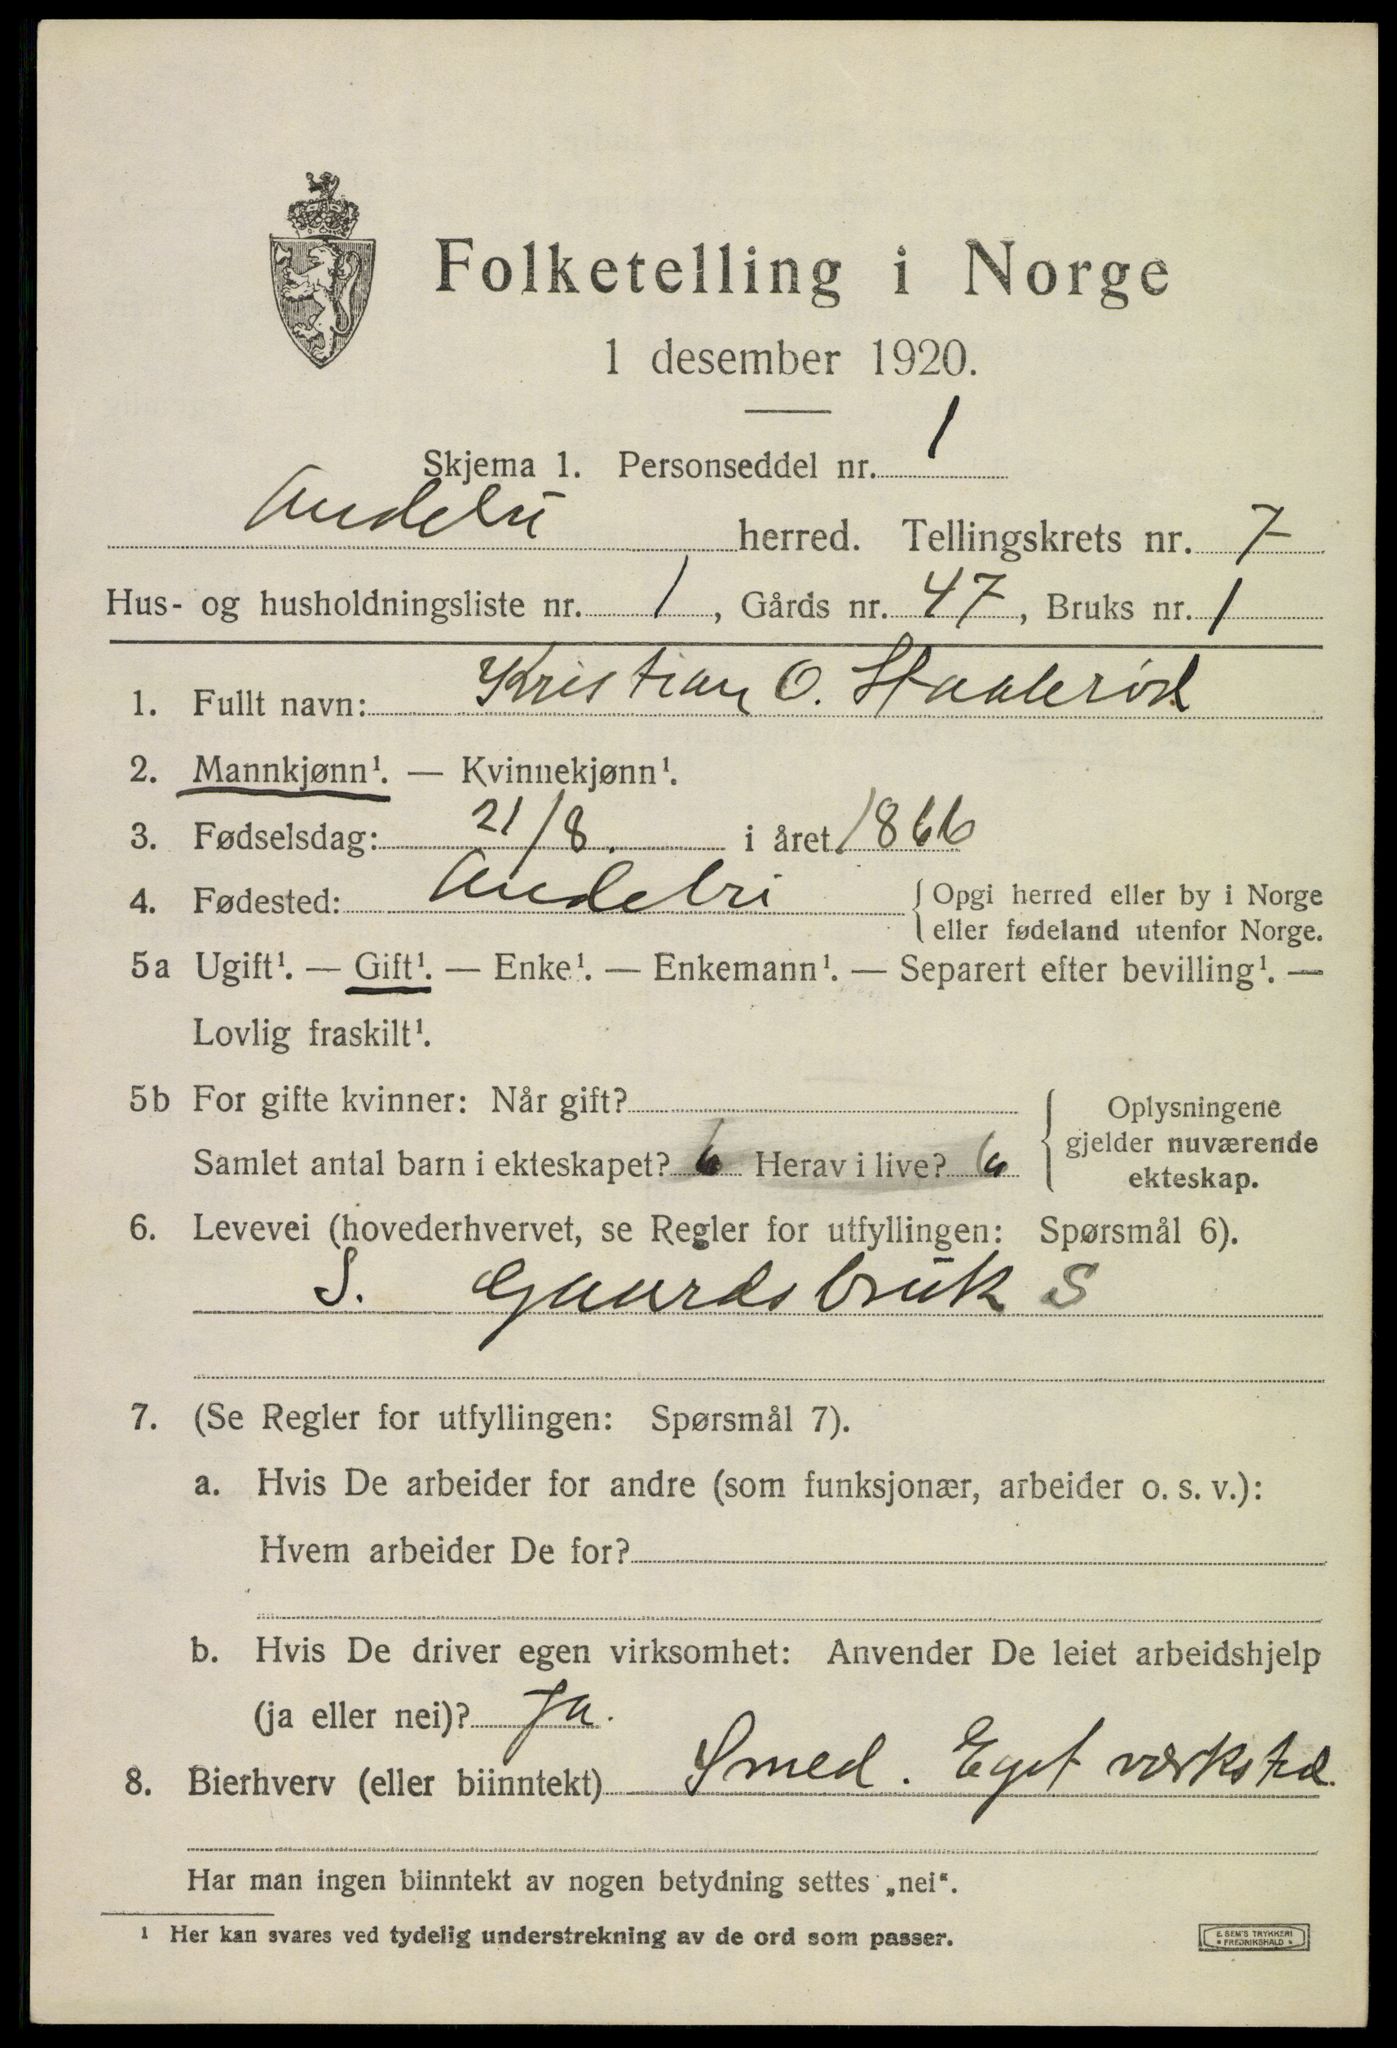 Folketelling i Norge
1 desember 1920.
Skjema 1. Personseddel nr. 1
Andebu herred. Tellingskrets nr. 7
Hus- og husholdningsliste nr. 1, Gårds nr. 47, Bruks nr. 1
1. Fullt navn: Kristian O. Staalerød
2. Mannkjønn¹. — Kvinnekjønn¹.
3. Fødselsdag: 21/8. i året 1866
4. Fødested: Andebu { Opgi herred eller by i Norge
eller fødeland utenfor Norge.
5a Ugift¹. — Gift¹. — Enke¹. — Enkemann¹. — Separert efter bevilling¹. —
Lovlig fraskilt¹.
5b For gifte kvinner: Når gift?
Samlet antal barn i ekteskapet? 6 Herav i live? 6
Oplysningene
gjelder nuværende
ekteskap.
6. Levevei (hovederhvervet, se Regler for utfyllingen: Spørsmål 6).
S. Gaardsbruk S
7. (Se Regler for utfyllingen: Spørsmål 7).
a. Hvis De arbeider for andre (som funksjonær, arbeider o. s. v.):
Hvem arbeider De for?
b. Hvis De driver egen virksomhet: Anvender De leiet arbeidshjelp
(ja eller nei)? Ja.
8. Bierhverv (eller biinntekt) Smed. Eget værksted.
Har man ingen biinntekt av nogen betydning settes „nei“.
¹ Her kan svares ved tydelig understrekning av de ord som passer.
E. SEM'S TRYKKERI
* FREDRIKSHALD *